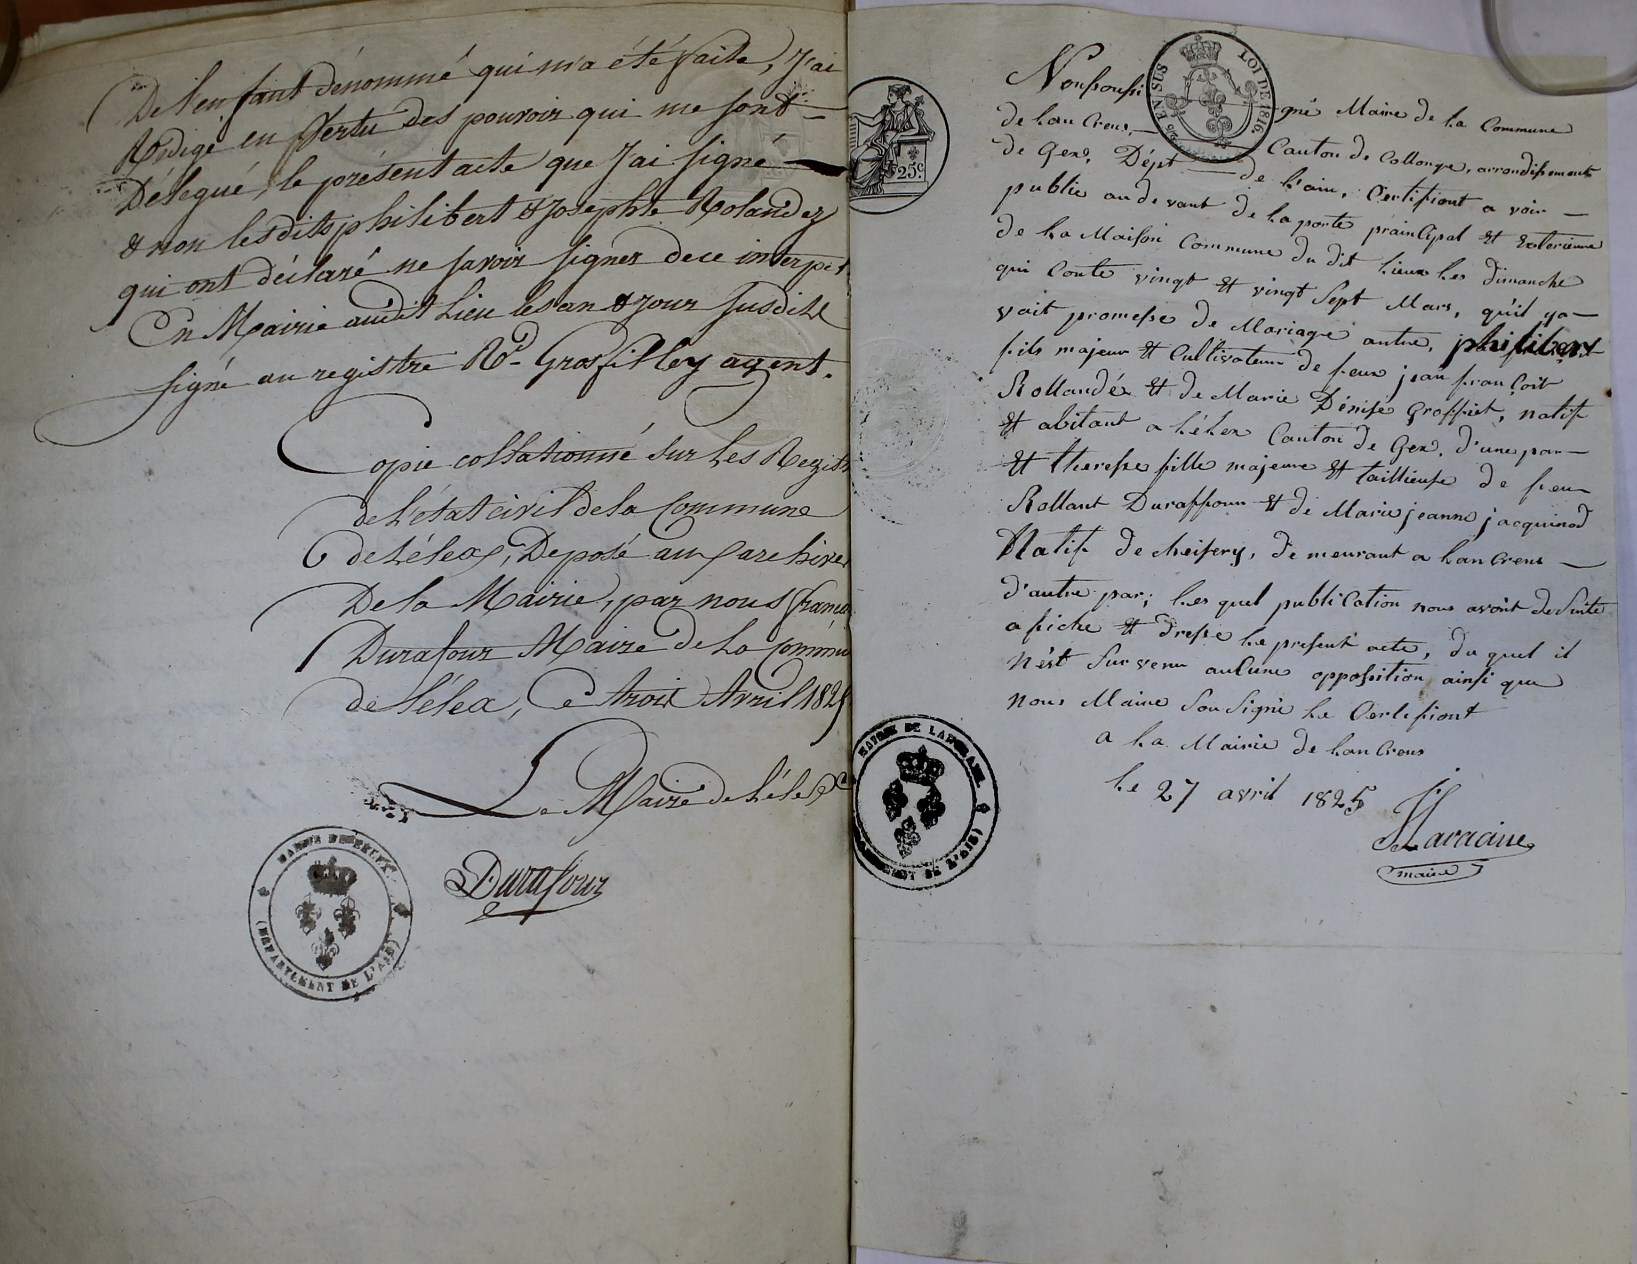 De l'enfant dénommé qui m'a été faite, J'ai
Rédigé en Vertu des pouvoir qui me sont
Délegué, le présent acte que J'ai signé
& non lesdits philibert & Josephte Rolandez
qui ont déclaré ne savoir signer de ce interpel
En Mairie audit Lieu les an & jour susdits
signé au registre Rd. Grosfilley agent.
Copie collationné sur les Regist
de l'état civil de la Commune
de Lélex, Déposé aux archives
De la Mairie, par nous françois
Durafour Maire de la Commu
de Lélex, Ce trois Avril 1825
Le Maire de Lélex
Durafour
MAIRIE DE LELEX
(DÉPARTEMENT DE L'AIN)
25 EN SUS
LOI DE 1816
25c
Nous sousi gné Maire de La Commune
de Lan Crans, Canton de Collonge, arrondissement
de Gex, Dépt de L'ain, Certifiont a voir
publie au devant de La porte prainCipal Et Exterieure
de La Maison Commune du dit Lieux Les dimanche
qui Conte vingt Et vingt Sept Mars, qu'il ya
vait promesse de Mariage antre, philibert
fils majeur Et Cultivateur de feux jean françoit
Rollandéz Et de Marie Dénise Groffiet, natif
Et abitant a Lélex Canton de Gex, d'une par
Et Therese fille majeure Et taillieuse de feu
Rollant Duraffour Et de Marie jeanne jacquinod
Natif de cheisery, demeurant a Lan Crans
d'autre par; Les quel publiCation nous avont de Suite
afiche Et dresse Le present acte, du quel il
n'est Survenu auCune opposition ainsi que
nous Maire Sousigné Le Certifiont
a La Mairie de Lan Crans
Le 27 avril 1825
Lavacine
maire
MAIRIE DE LANCRANS
(DÉPARTEMENT DE L'AIN)